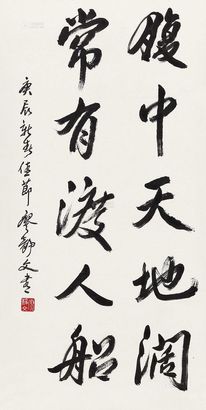 腹中天地阔
常有渡人船
庚辰新春佳节廖静文书